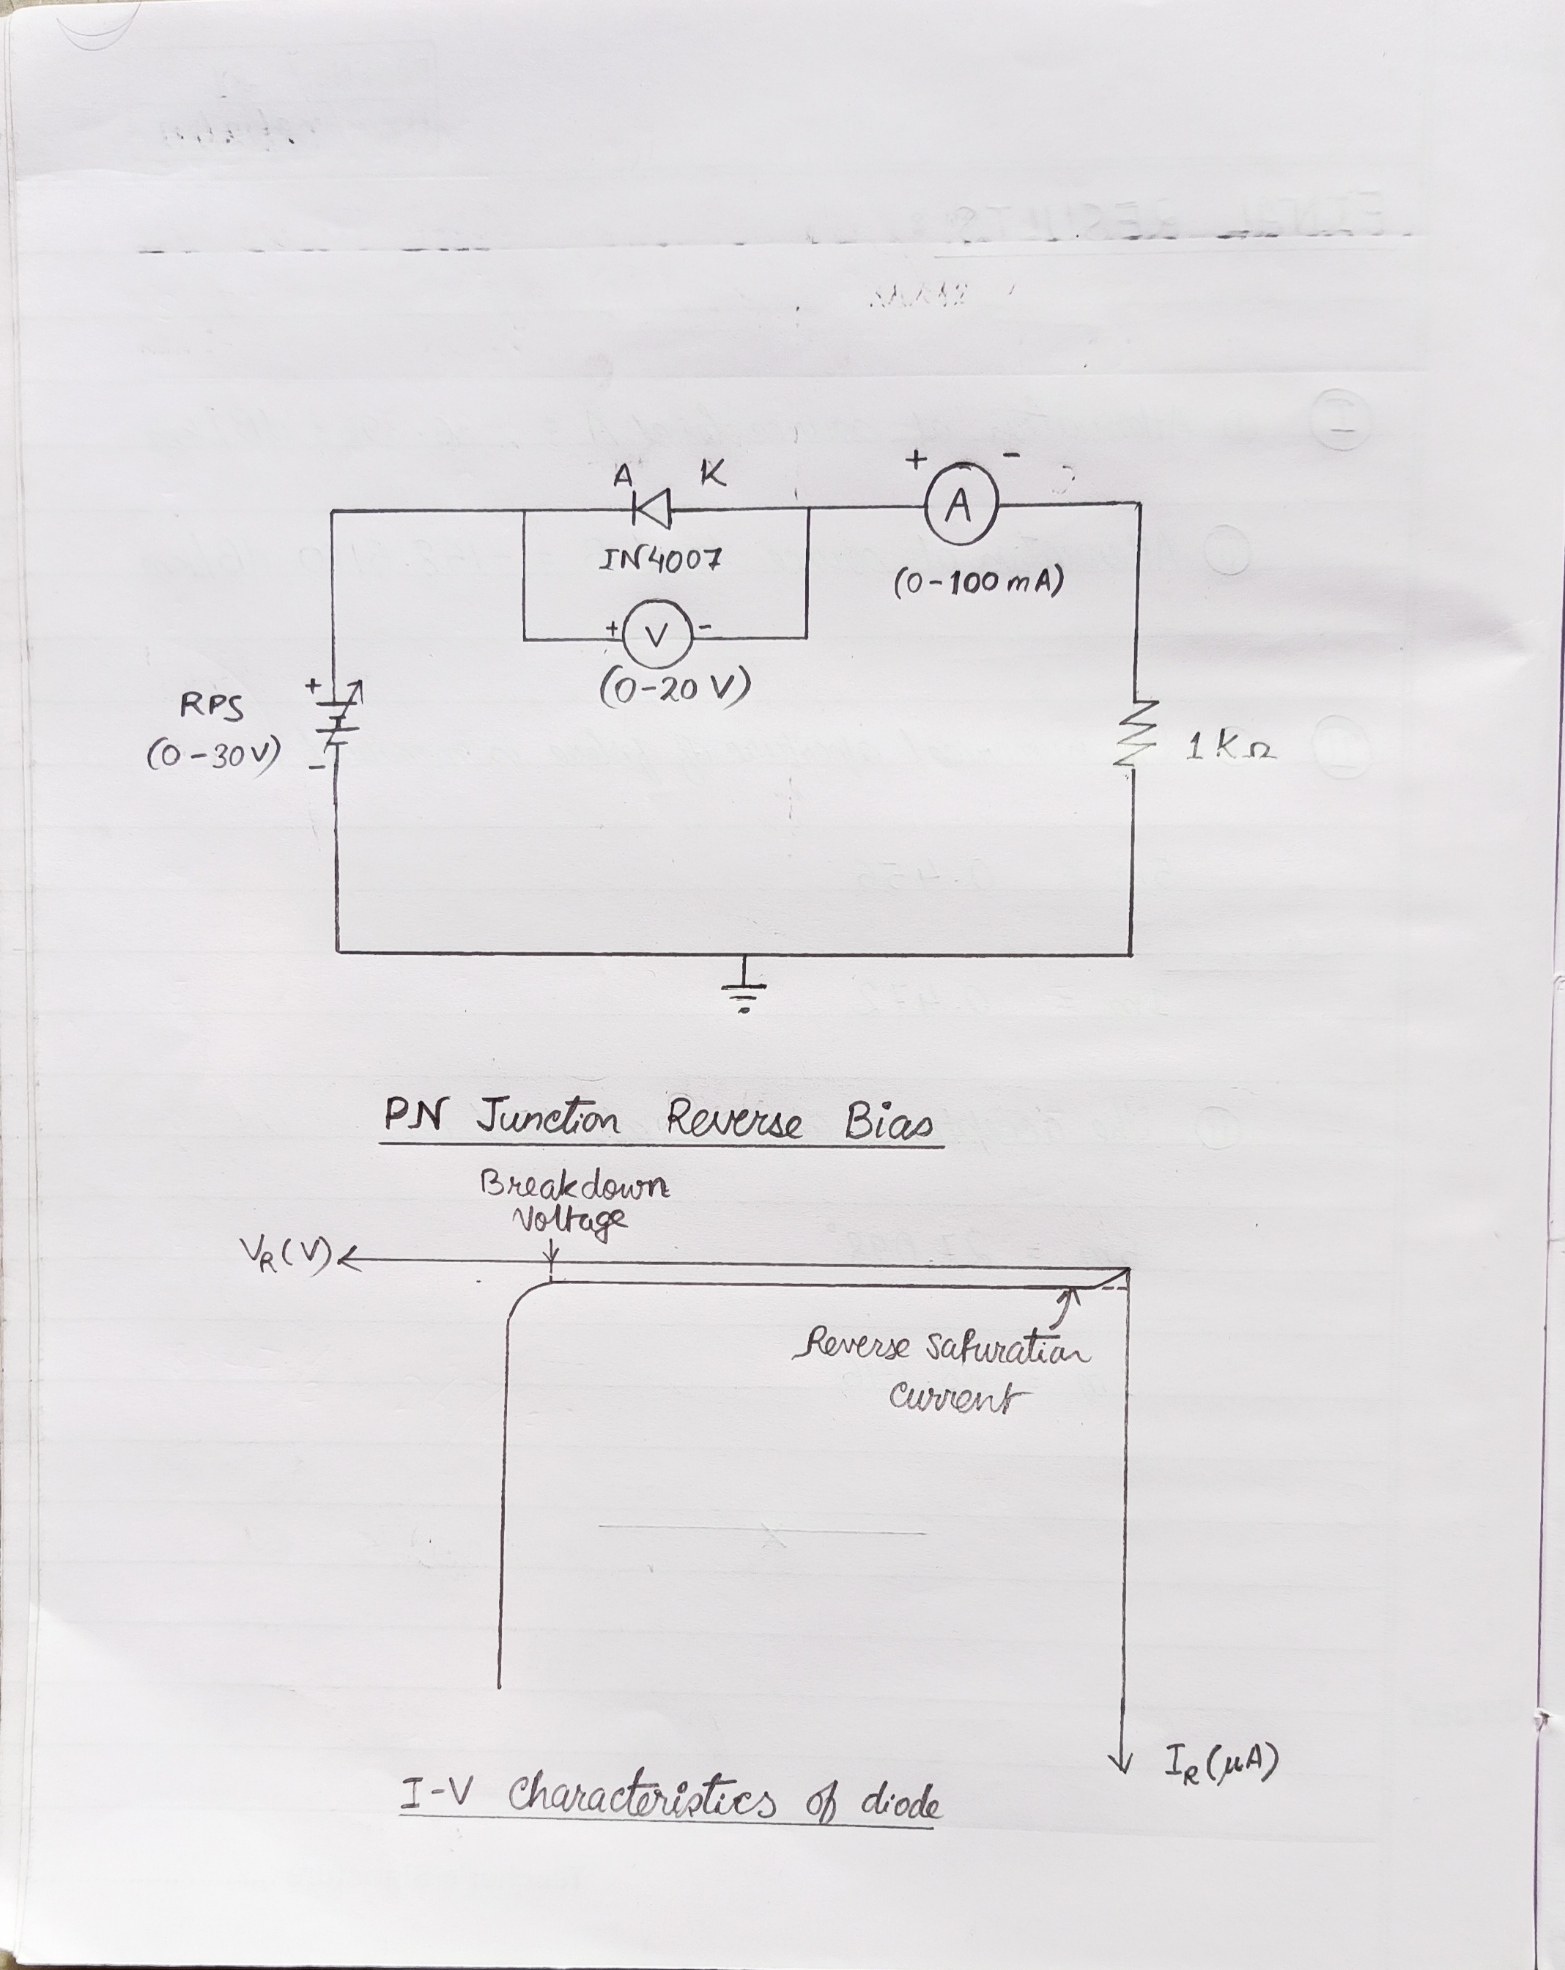 A K
+ -
A
IN4007
(0-100 mA)
+ V -
(0-20 V)
RPS
(0-30V)
+
-
1 KΩ
PN Junction Reverse Bias
Breakdown
Voltage
VR(V)
Reverse Saturation
Current
IR(μA)
I-V Characteristics of diode